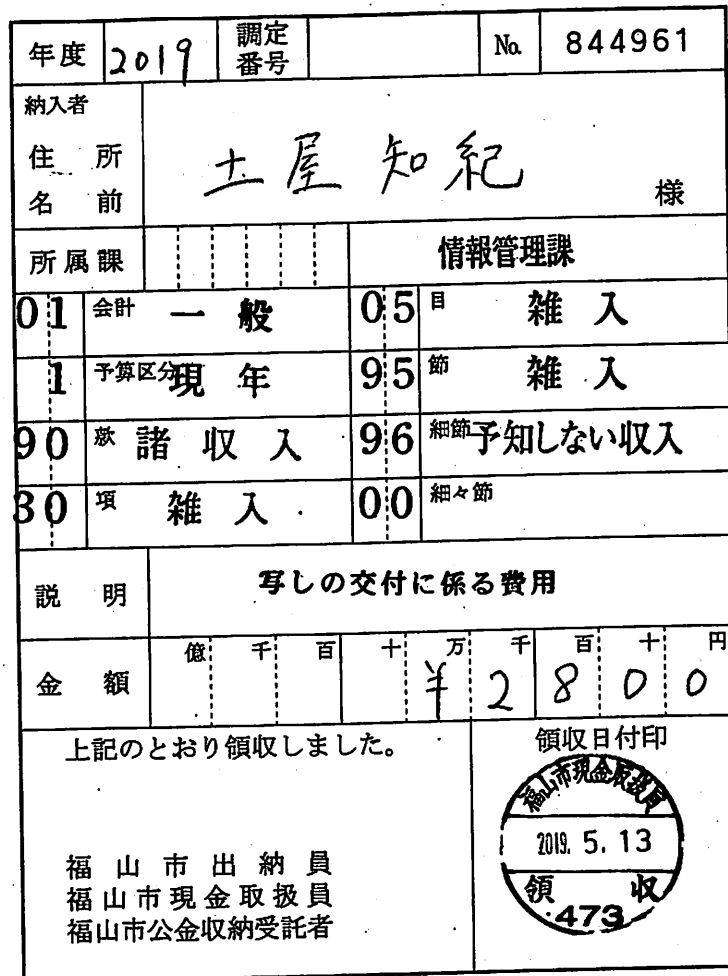 年度 2019 調定番号 No. 844961
納入者
住所
名前
土屋 知紀 様
所属課 情報管理課
01 会計 一般 05 目 雑入
1 予算区分 現年 95 節 雑入
90 款 諸収入 96 細節 予知しない収入
30 項 雑入 00 細々節
説明 写しの交付に係る費用
金額 億 千 百 十 万 千 百 十 円
¥2800
上記のとおり領収しました。
領収日付印
福山市現金取扱員
2019. 5. 13
領収
473
福山市出納員
福山市現金取扱員
福山市公金収納受託者